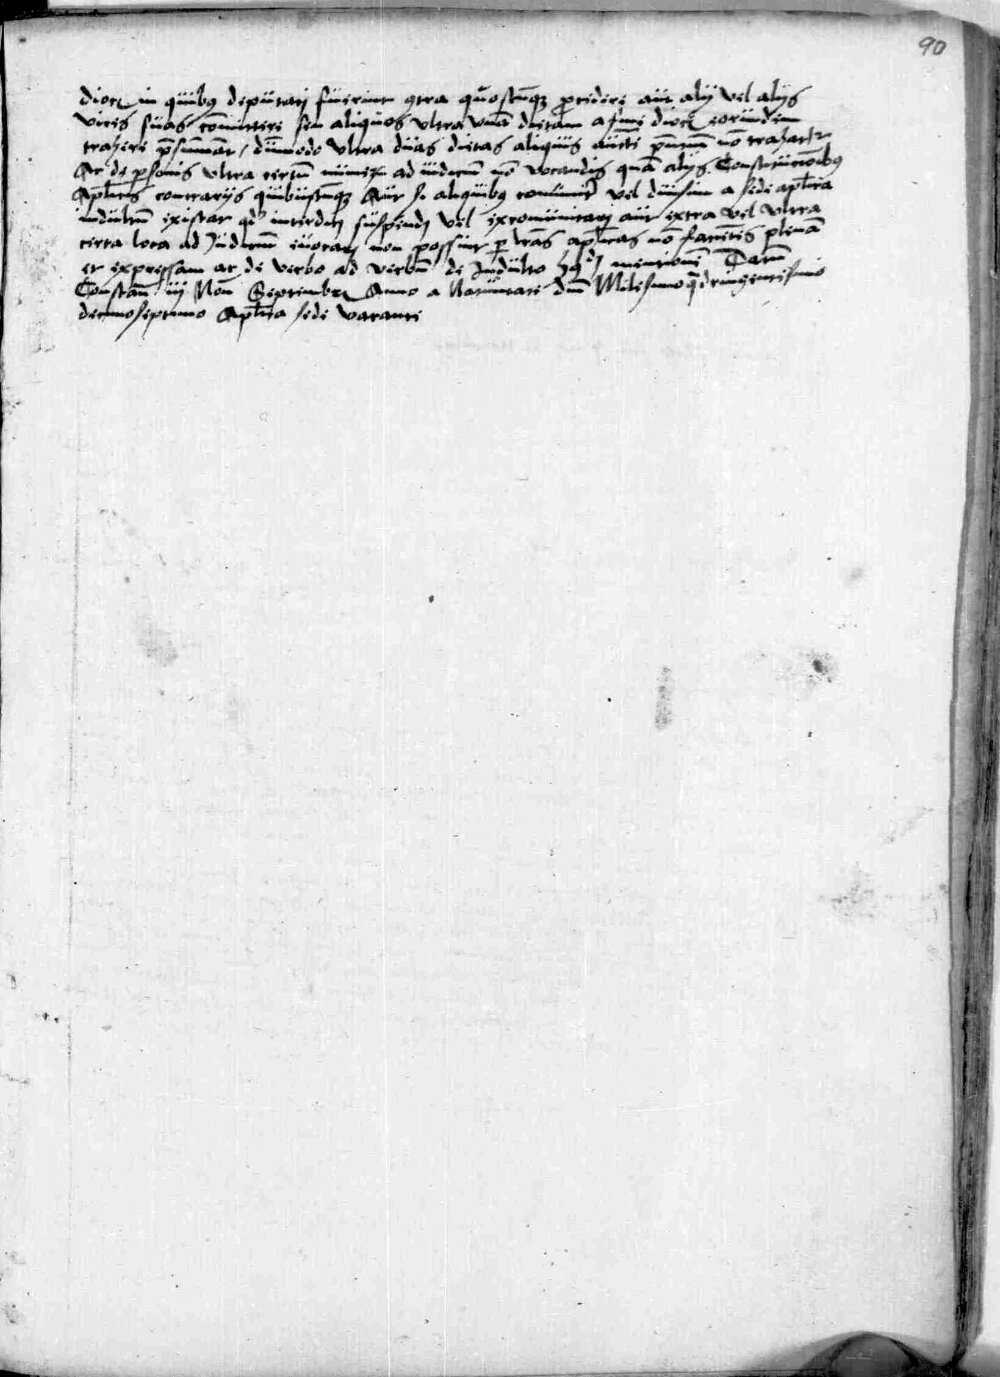 90
dioc in quibus deputati fuerint ɔtra quoscūqȝ ꝓcedere aut alij vel alijs
vices suas cōmittere seu aliquos vltra vnā dietam a fine dioc eorundem
trahere p̄sumāt / dūmodo vltra duas dietas aliquis auctē p̄ntium nō trahatr
Ac de ꝑsonis vltra certum numeꝝ ad iudicium nō vocandis quā alijs Constitucionibus
Aplicis contrarijs quibuscūqȝ Aut si aliquibus comūit vel diuisim a sede aplica
indultum existat qd interdici suspendi vel excomunicari aut extra vel vltra
certa loca ad Judicium euocari non possint ꝑ lrās aplicas nō facientes plenā
et expressam ac de verbo ad verbū de Indulto hmōi mentionem Datum
Constan iij Non Septembr Anno a Natiuitate dnī Milesimo quadringentesimo
decimoseptimo Aplica sede vacante